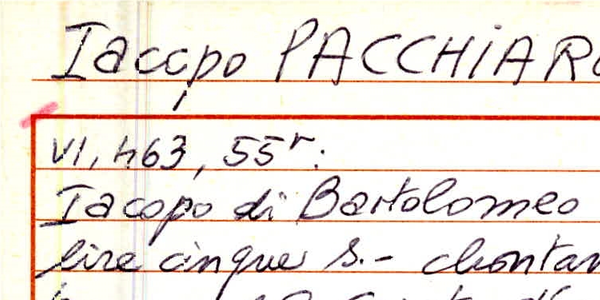 Iacopo PACCHIARO
VI, 463, 55r:
Iacopo di Bartolomeo
lire cinque s.- chontan